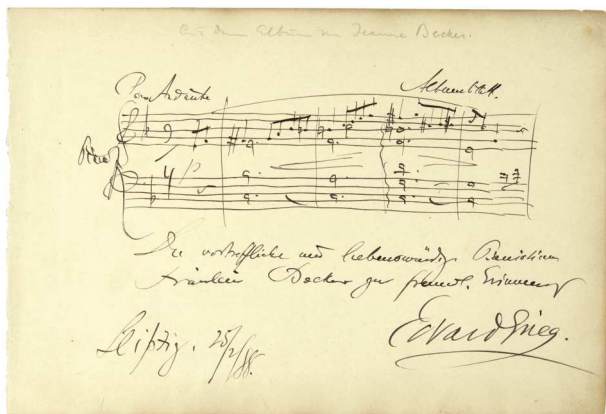 Aus dem Album von Jeanne Becker.
Poco Andante
Albumblatt.
Piano
p
Die vortreffliche und liebenswürdige Pianistin
Fräulein Becker zur freundl. Erinnerung
Edvard Grieg.
Leipzig. 25/2/88.